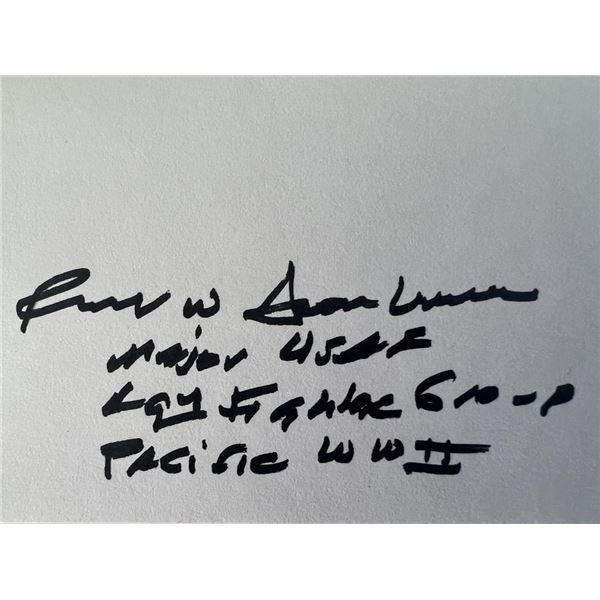 W
Major USAF
49 Fighter Group
Pacific WW II